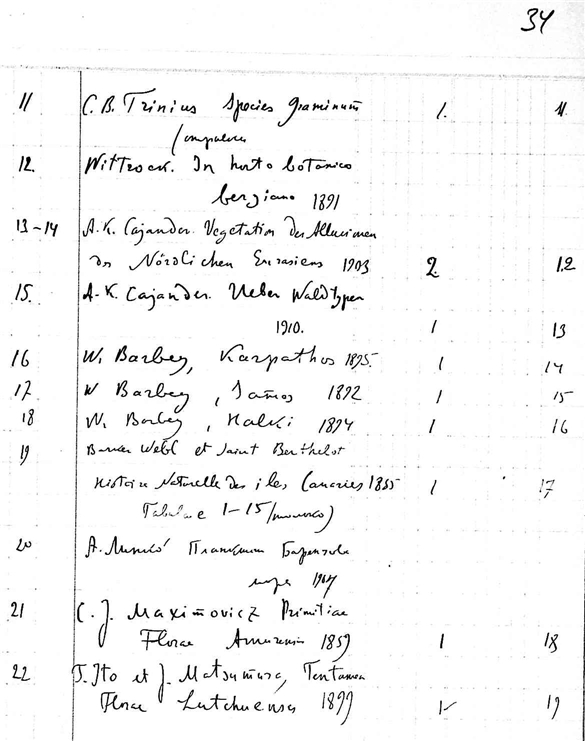 34
11 C.B. Trinius Species graminum 1. 11.
12. Wittrock. In horto botanico
bergiano 1891
13-14 A.K. Cajander. Vegetation der Alluvionen
des Nördlichen Eurasiens 1903 2. 12
15. A.K. Cajander. Ueber Waldtypen
1910. 1 13
16 W. Barbey, Karpathos 1895. 1 14
17. W Barbey, Samos 1892 1 15
18 W. Barbey, Halki 1894 1 16
19 Barker Webb et Saint Berthelot
Histoire Naturelle des iles Canaries 1835 1 17
Tabulae 1-15
20 А. Планктон Баренцова
моря
21 C.J. Maximovicz Primitiae
Florae Amurensis 1859 1 18
22 T. Ito et J. Matsumura, Tentamen
Florae Lutchuensis 1899 1 19